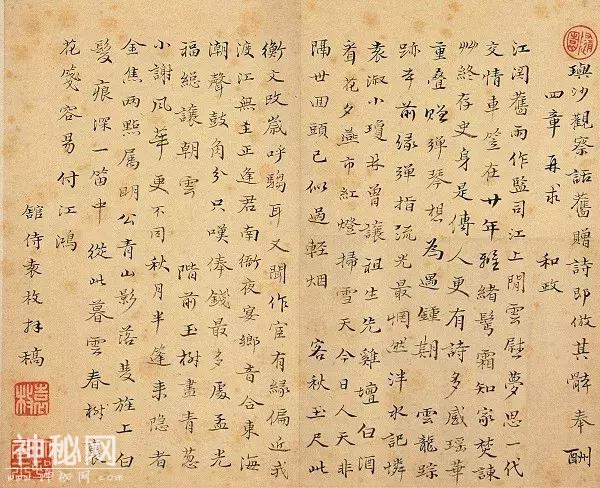 璵沙觀察話舊贈詩即倣其辭奉酬
四章再求 和政
江閣舊雨作監司江上閒雲慰夢思一代
交情車笠在廿年離緒鬢霜知家焚諫
艸終存史身是傳人更有詩多感瑤華
重疊贈彈琴想為遇鍾期 雲龍踪
跡前緣彈指流光最惘然泮水記憐
袁淑小瓊林曾讓祖生先雞壇白酒
看花夕燕市紅燈掃雪天今日人天非
隔世回頭已似過輕烟 客秋玉尺此
衡文歲呼騶耳又聞作宦有緣偏近
渡江無主正逢君南衙夜宴鄉音合東海
潮聲鼓角分只嘆俸錢最多處孟光
福總讓朝雲 階前玉樹畫青蔥
小謝風華更不同秋月半篷來隱者
金焦兩點屬明公青山影落雙旌上白
髮痕深一笛中 從此暮雲春樹裏
花箋容易付江鴻
館侍袁枚拜稿
袁枚
神秘网